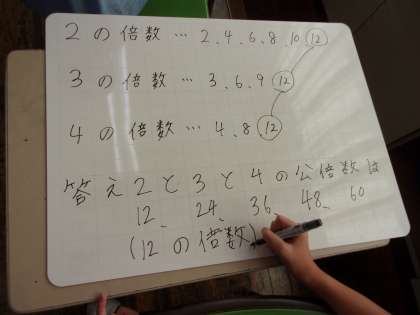 2の倍数…2、4、6、8、10、12
3の倍数…3、6、9、12
4の倍数…4、8、12
答え2と3と4の公倍数は
12、24、36、48、60
(12の倍数)